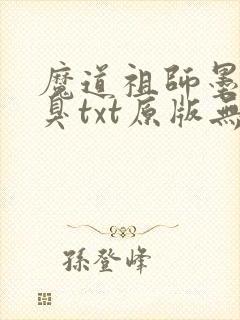 魔道祖師墨
臭txt原版無
孫登峰